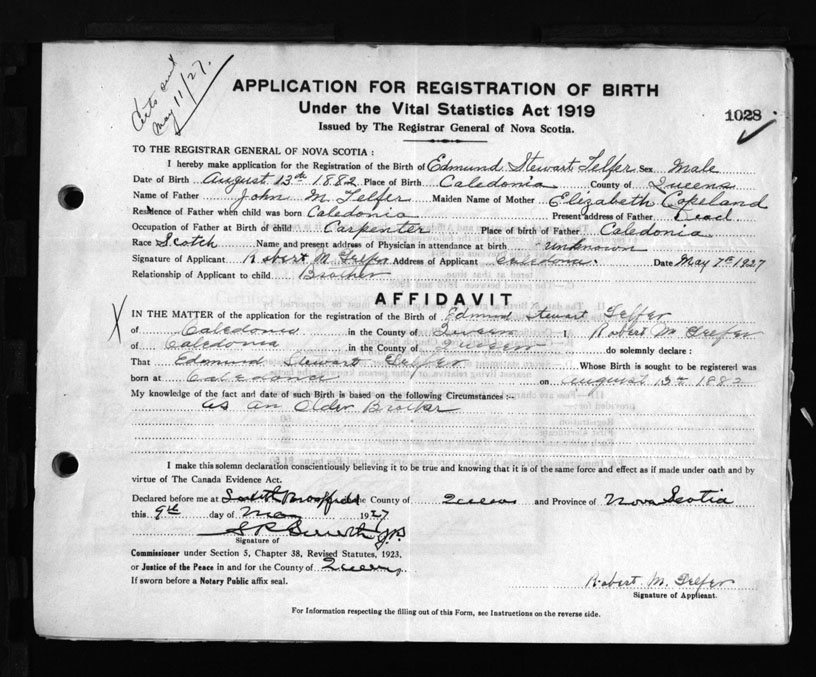 Certs sent
May 11/27.
APPLICATION FOR REGISTRATION OF BIRTH
Under the Vital Statistics Act 1919
1028
Issued by The Registrar General of Nova Scotia.
TO THE REGISTRAR GENERAL OF NOVA SCOTIA :
I hereby make application for the Registration of the Birth of Edmund Stewart Telfer Sex Male
Date of Birth August 13th 1882 Place of Birth Caledonia County of Queens
Name of Father John M. Telfer Maiden Name of Mother Elizabeth Copeland
Residence of Father when child was born Caledonia Present address of Father Dead
Occupation of Father at Birth of child Carpenter Place of birth of Father Caledonia
Race Scotch Name and present address of Physician in attendance at birth unknown
Signature of Applicant Robert M Telfer Address of Applicant Caledonia. Date May 7th 1927
Relationship of Applicant to child Brother
AFFIDAVIT
X IN THE MATTER of the application for the registration of the Birth of Edmund Stewart Telfer
of Caledonia in the County of Queen I, Robert M Telfer
of Caledonia in the County of Queen do solemnly declare :
That Edmund Stewart Telfer Whose Birth is sought to be registered was
born at Caledonia on August 13th 1882
My knowledge of the fact and date of such Birth is based on the following Circumstances :-
as an Older Brother
I make this solemn declaration conscientiously believing it to be true and knowing that it is of the same force and effect as if made under oath and by
virtue of The Canada Evidence Act.
Declared before me at South Brookfield the County of Queens and Province of Nova Scotia
this 9th day of May 1927
Signature of
Commissioner under Section 5, Chapter 38, Revised Statutes, 1923,
or Justice of the Peace in and for the County of Queens
If sworn before a Notary Public affix seal.
Robert M. Telfer
Signature of Applicant.
For Information respecting the filling out of this Form, see Instructions on the reverse side.